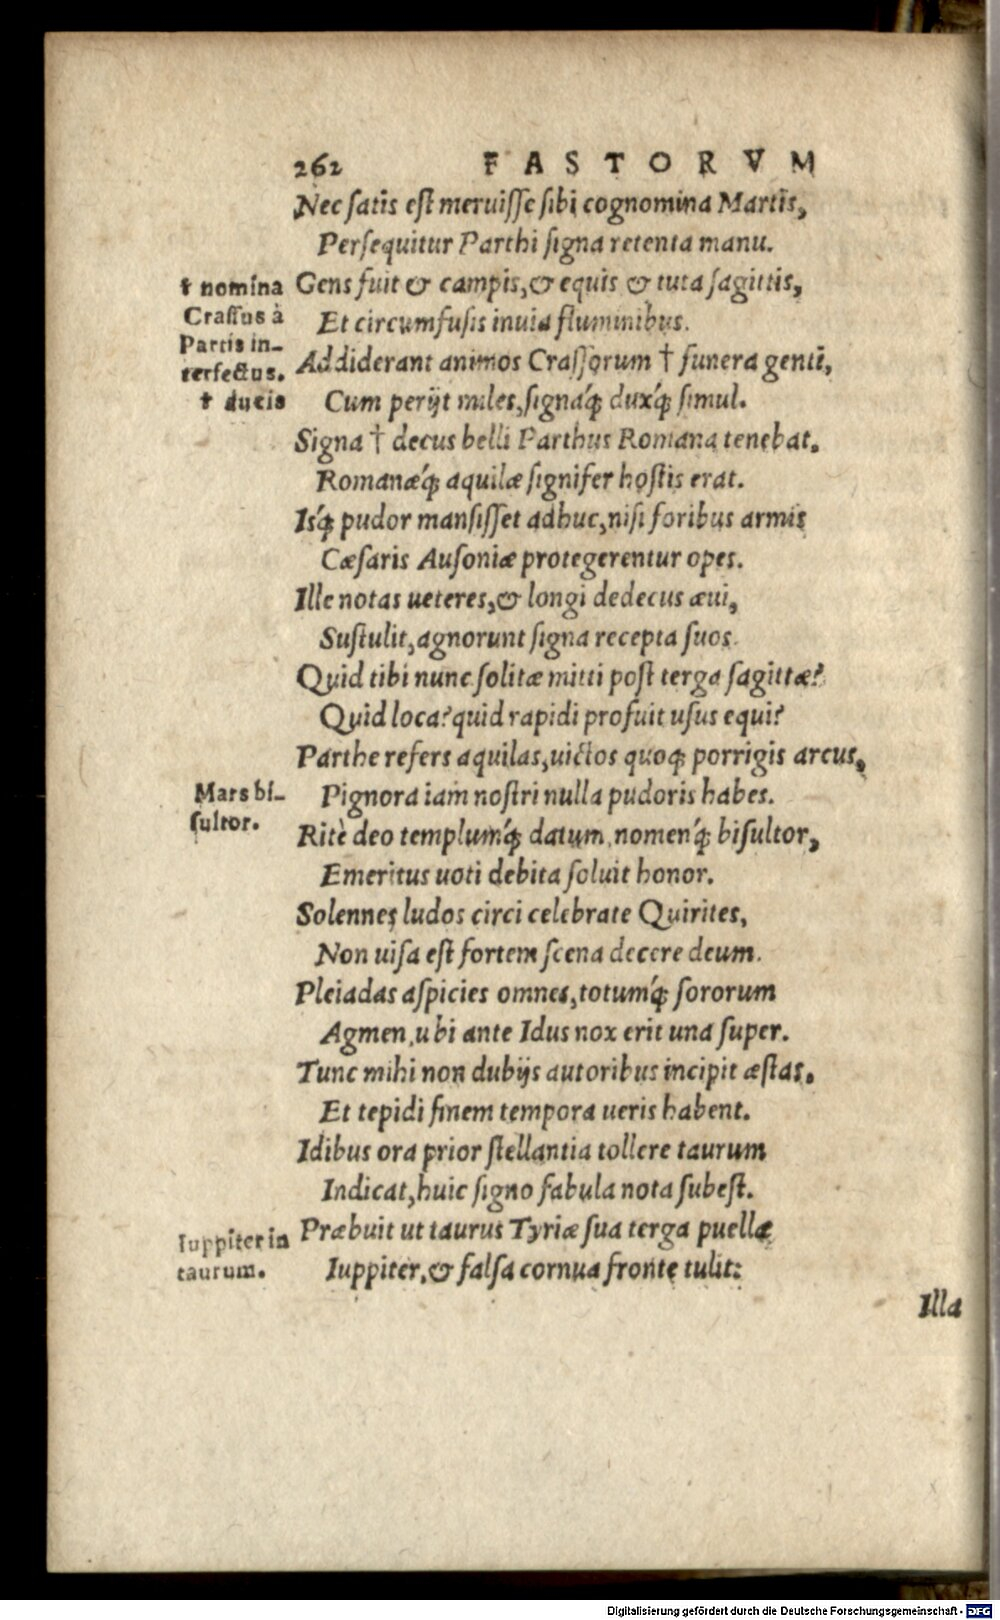 262 FASTORVM
Nec satis est meruisse sibi cognomina Martis,
Persequitur Parthi signa retenta manu.
Gens fuit & campis, & equis & tuta sagittis,
Et circumfusis inuia fluminibus.
Addiderant animos Crassorum † funera genti,
Cum perijt miles, signáq; duxq́; simul.
Signa † decus belli Parthus Romana tenebat.
Romanæq́; aquilæ signifer hostis erat.
Isq́; pudor mansisset adhuc, nisi foribus armis
Cæsaris Ausoniæ protegerentur opes.
Ille notas ueteres, & longi dedecus æui,
Sustulit, agnorunt signa recepta suos.
Quid tibi nunc solitæ mitti post terga sagittæ?
Quid loca? quid rapidi profuit usus equi?
Parthe refers aquilas, uictos quoq; porrigis arcus,
Pignora iam nostri nulla pudoris habes.
Ritè deo templumq́; datum, nomenq́; bisultor,
Emeritus uoti debita soluit honor.
Solennes ludos circi celebrate Quirites,
Non uisa est fortem scena decere deum.
Pleiadas aspicies omnes, totumq́; sororum
Agmen, ubi ante Idus nox erit una super.
Tunc mihi non dubijs autoribus incipit æstas,
Et tepidi finem tempora ueris habent.
Idibus ora prior stellantia tollere taurum
Indicat, huic signo fabula nota subest.
Præbuit ut taurus Tyriæ sua terga puellæ
Iuppiter, & falsa cornua fronte tulit:
Illa
† nomina
Crassus à
Partis in-
terfectus.
† ducis
Mars bi-
sultor.
Iuppiter in
taurum.
Digitalisierung gefördert durch die Deutsche Forschungsgemeinschaft - DFG